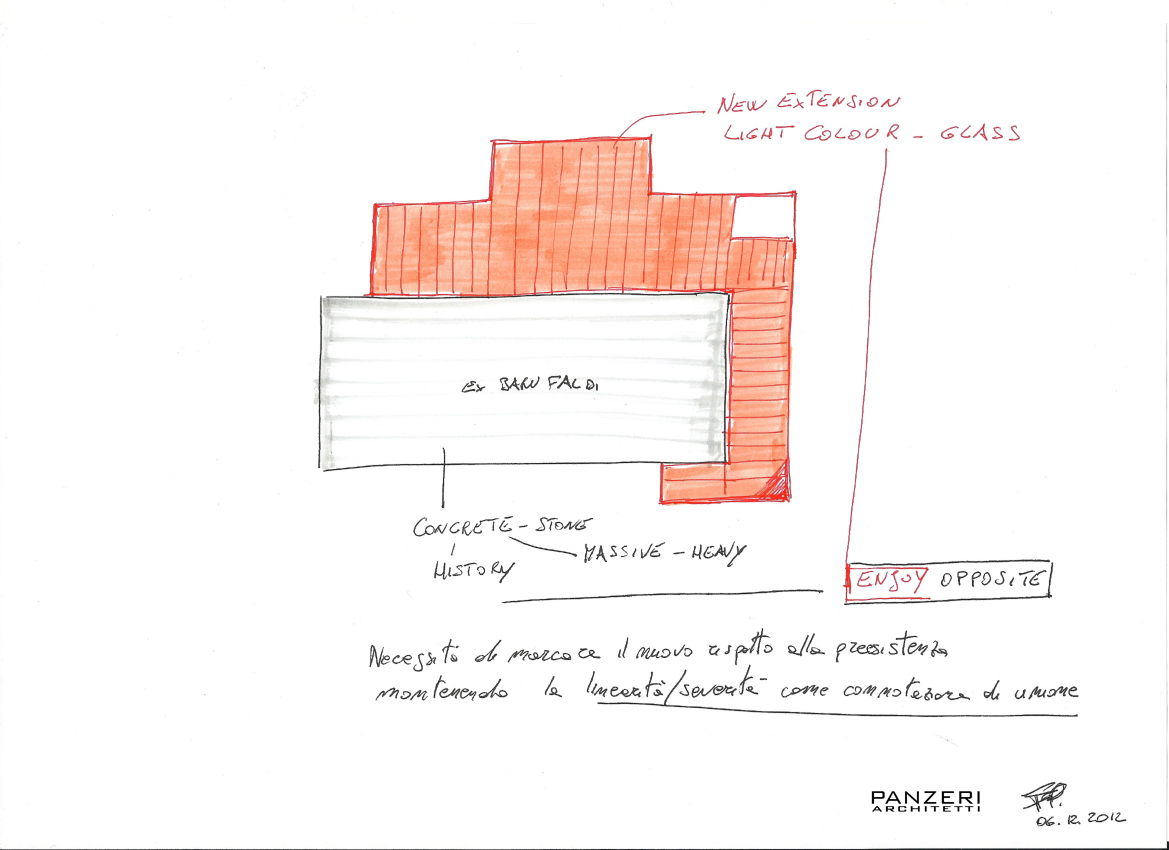 NEW EXTENSION
LIGHT COLOUR - GLASS
EX BARUFALDI
CONCRETE - STONE
MASSIVE - HEAVY
HISTORY
ENJOY OPPOSITE
Necessità di marcare il nuovo rispetto alla preesistenza
mantenendo la linearità/severità come connotazione di unione
PANZERI
ARCHITETTI
06.12.2012